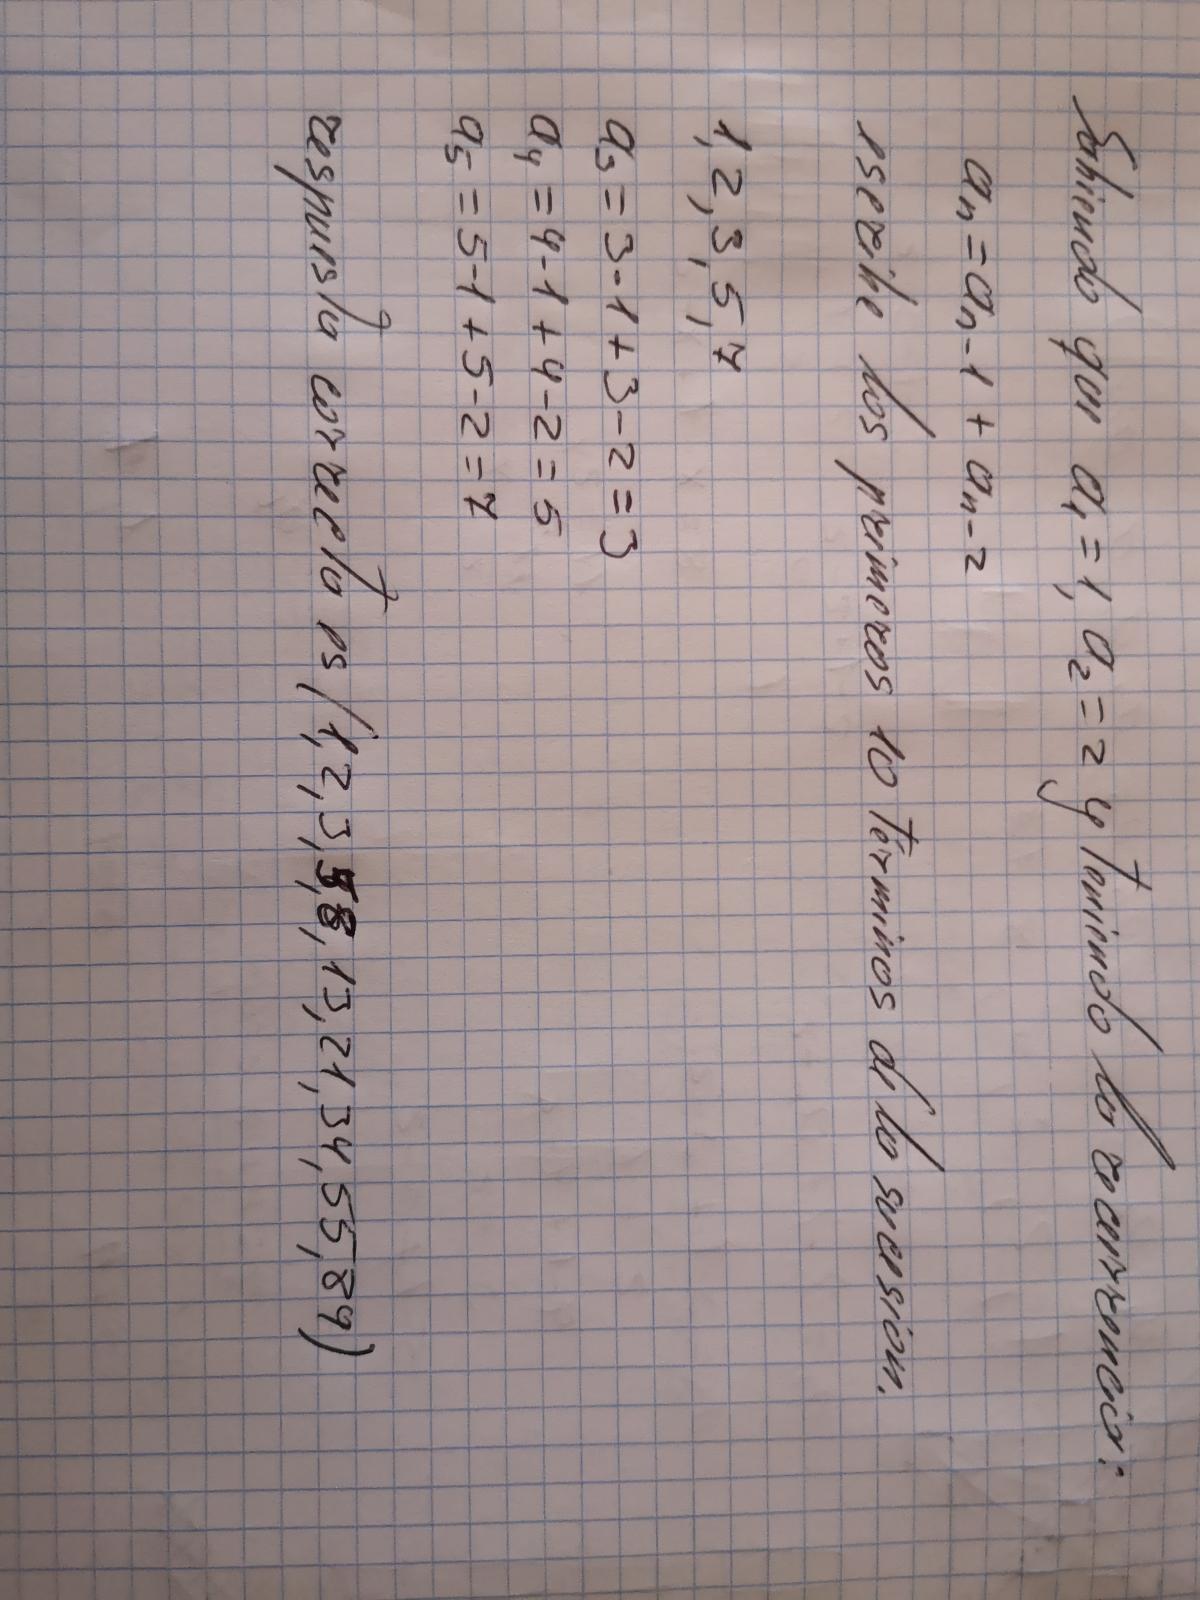 Sabiendo que a₁=1, a₂=2 y teniendo la recurrencia:
aₙ=aₙ-1 + aₙ-2
escribe los primeros 10 términos de la sucesión.
1, 2, 3, 5, 7
a₃=3-1+3-2=3
a₄=4-1+4-2=5
a₅=5-1+5-2=7
respuesta correcta es (1, 2, 3, 5, 8, 13, 21, 34, 55, 89)